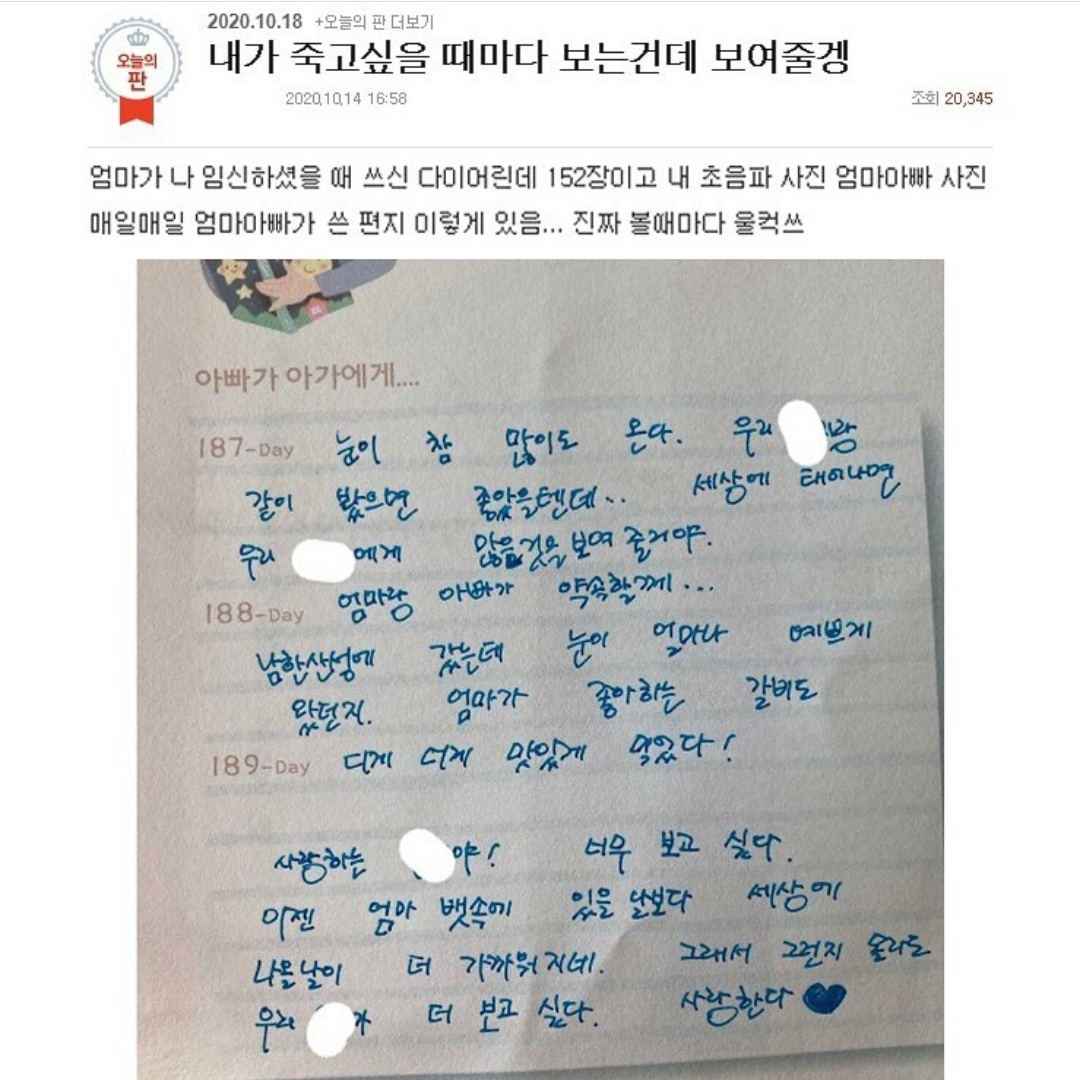 2020.10.18 +오늘의 판 더보기
오늘의
판
내가 죽고싶을 때마다 보는건데 보여줄겡
2020.10.14 16:58
조회 20,345
엄마가 나 임신하셨을 때 쓰신 다이어린데 152장이고 내 초음파 사진 엄마아빠 사진
매일매일 엄마아빠가 쓴 편지 이렇게 있음... 진짜 볼때마다 울컥쓰
아빠가 아가에게....
187-Day 눈이 참 많이도 온다. 우리 랑
같이 봤으면 좋았을텐데.. 세상에 태어나면
우리 에게 많을것을 보여 줄거야.
188-Day 엄마랑 아빠가 약속할께...
남한산성에 갔는데 눈이 얼마나 예쁘게
왔던지. 엄마가 좋아하는 갈비도
189-Day 디게 너게 맛있게 먹었다!
사랑하는 야! 너무 보고 싶다.
이젠 엄마 뱃속에 있을 날보다 세상에
나올날이 더 가까워지네. 그래서 그런지 몰라도
우리 가 더 보고 싶다. 사랑한다 ♥